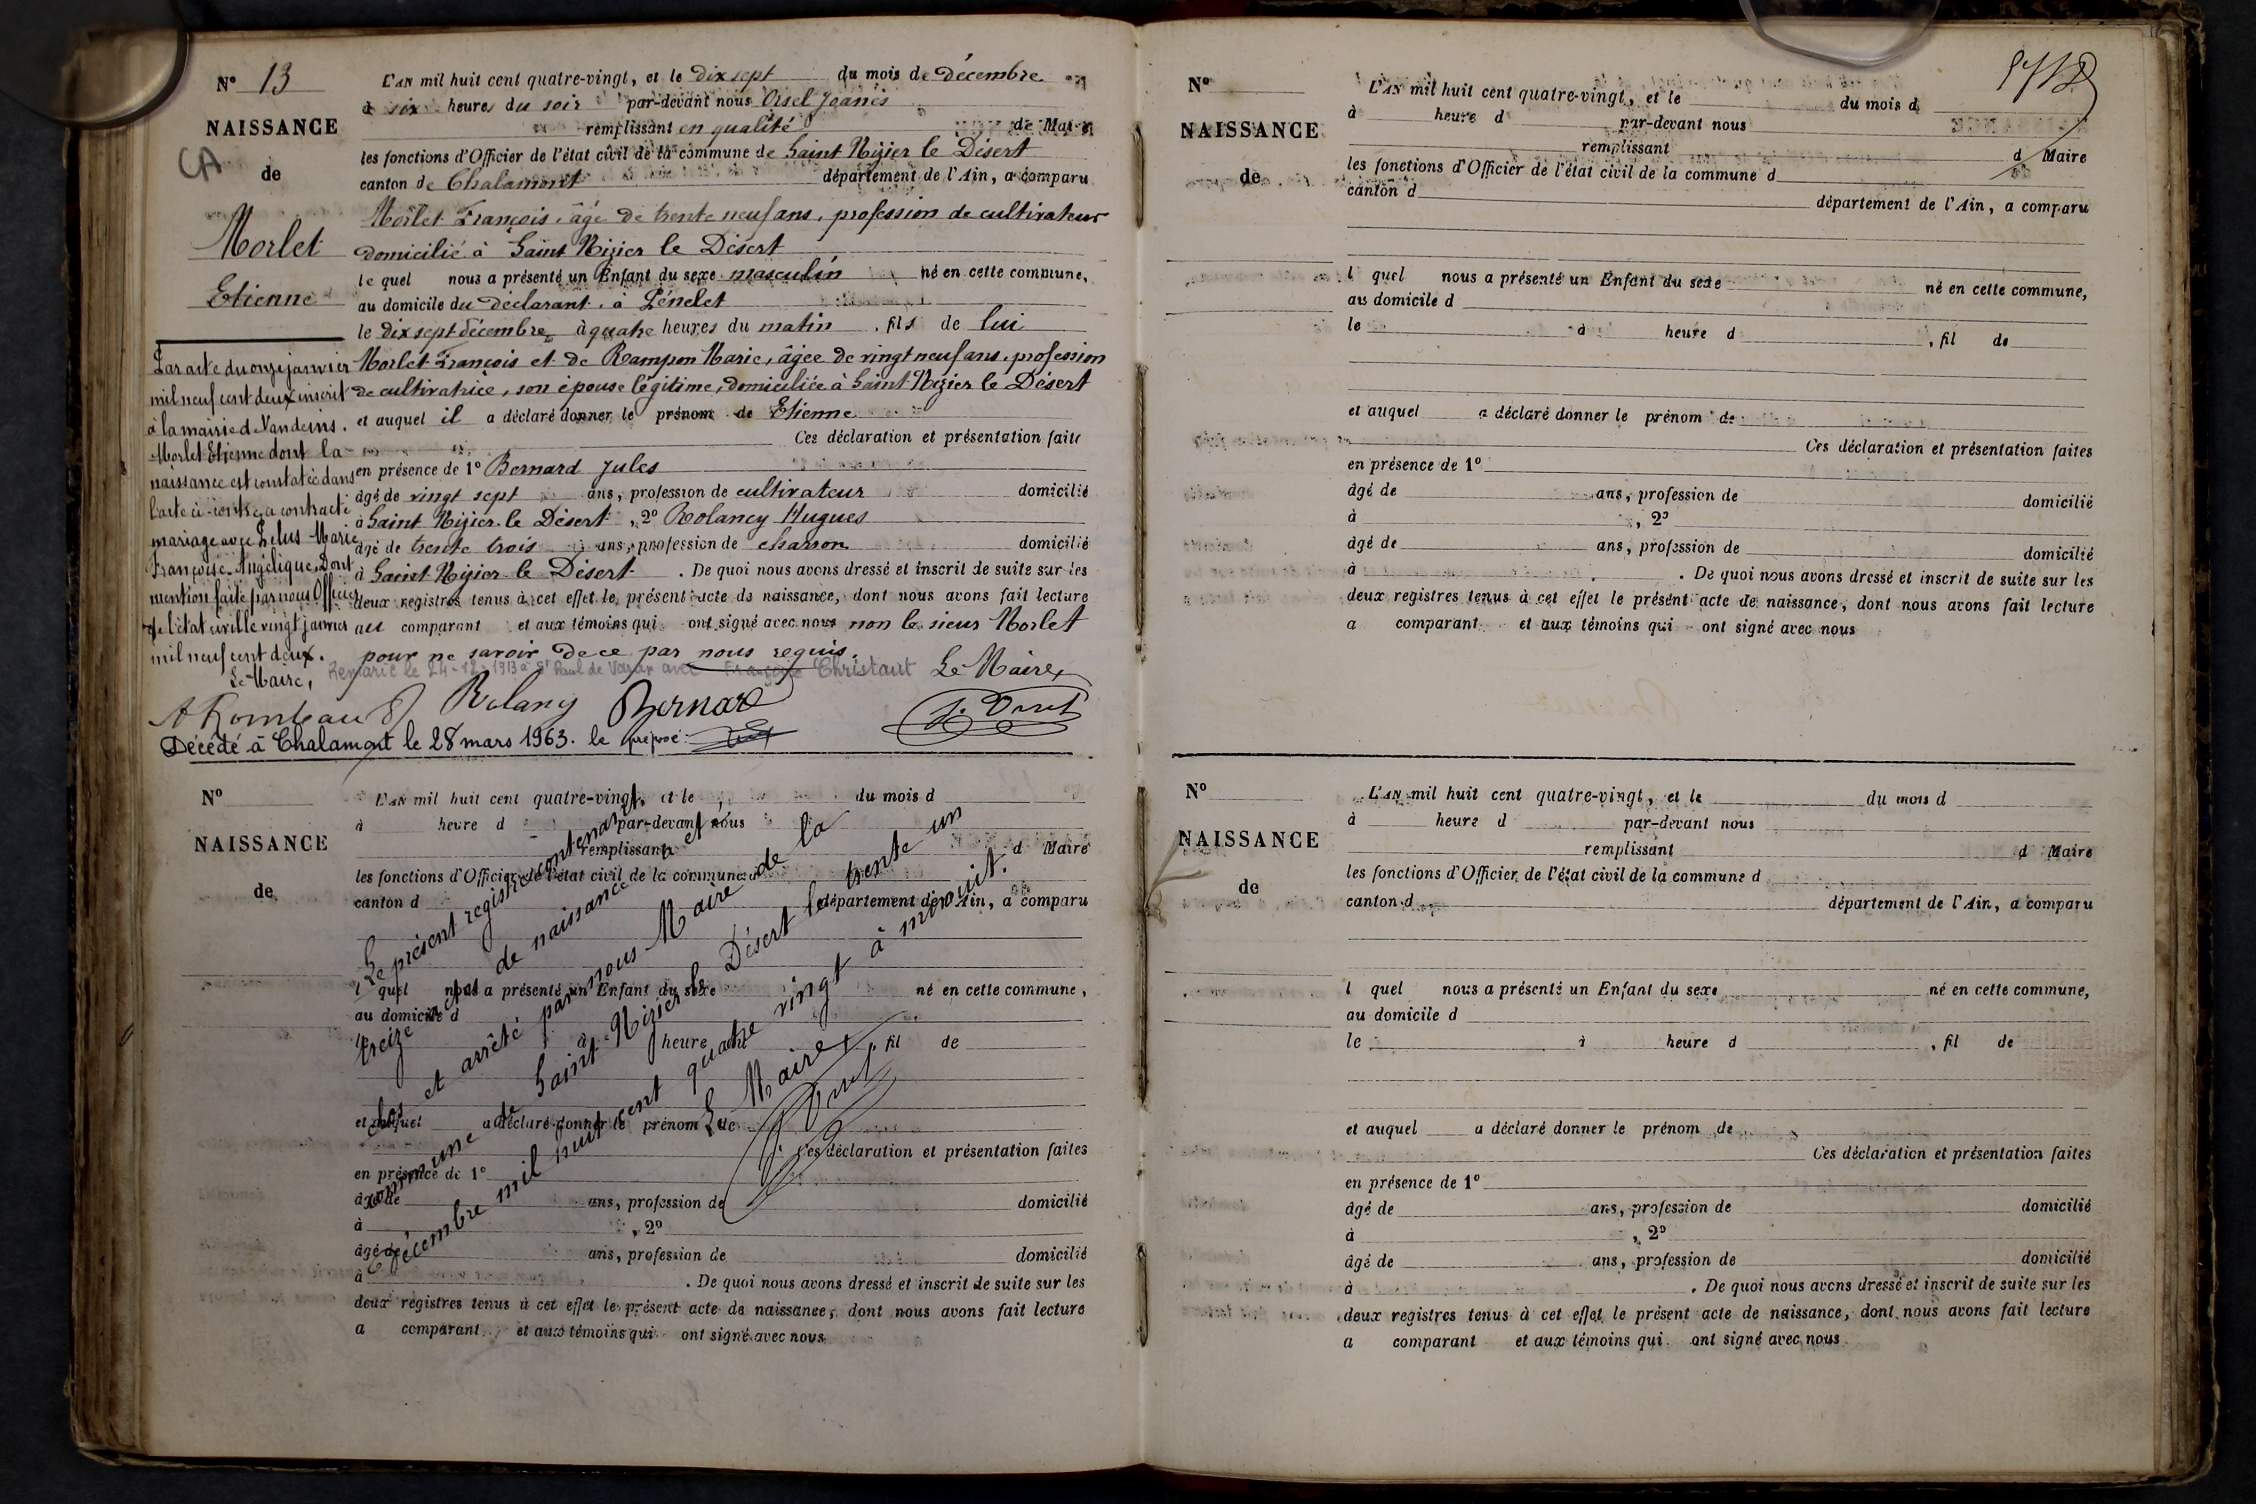 N° 13
NAISSANCE
de
Morlet
Etienne
CA
L'AN mil huit cent quatre-vingt, et le dix sept du mois de Décembre
à six heures du soir par-devant nous Orsel Joanès
remplissant en qualité de Maire
les fonctions d'Officier de l'état civil de la commune de Saint Nizier le Désert
canton de Chalamont département de l'Ain, a comparu
Morlet François, âgé de trente neuf ans, profession de cultivateur
domicilié à Saint Nizier le Désert
le quel nous a présenté un Enfant du sexe masculin né en cette commune,
au domicile du déclarant, à Pénelet
le dix sept décembre à quatre heures du matin, fils de lui
Morlet François et de Rampon Marie, âgée de vingt neuf ans, profession
de cultivatrice, son épouse légitime, domiciliée à Saint Nizier le Désert
et auquel il a déclaré donner le prénom de Etienne
Ces déclaration et présentation faites
en présence de 1° Bernard Jules
âgé de vingt sept ans, profession de cultivateur domicilié
à Saint Nizier le Désert, 2° Rolancy Hugues
âgé de trente trois ans, profession de charron domicilié
à Saint Nizier le Désert. De quoi nous avons dressé et inscrit de suite sur les
deux registres tenus à cet effet le présent acte de naissance, dont nous avons fait lecture
au comparant et aux témoins qui ont signé avec nous non le sieur Morlet
pour ne savoir de ce par nous requis.
Le Maire,
Rolancy Bernard
Par acte du onze janvier
mil neuf cent deux inscrit
à la mairie d Vandeins.
Morlet Etienne dont la
naissance est constatée dans
l'acte ci-contre, a contracté
mariage avec Zelus Marie
Françoise Angélique. Dont
mention faite par nous Officier
de l'état civil le vingt janvier
mil neuf cent deux.
Le Maire,
Remarié le 24-12-1913 à St Paul de Varax avec Françoise Christaut
Décédé à Chalamont le 28 mars 1963. le préposé:
N°
NAISSANCE
de
L'AN mil huit cent quatre-vingt, et le du mois d
à heure d par-devant nous
remplissant d Maire
les fonctions d'Officier de l'état civil de la commune d
canton d département de l'Ain, a comparu
l quel nous a présenté un Enfant du sexe né en cette commune,
au domicile d
le à heure d, fil de
et auquel a déclaré donner le prénom de
Ces déclaration et présentation faites
en présence de 1°
âgé de ans, profession de domicilié
à , 2°
âgé de ans, profession de domicilié
à . De quoi nous avons dressé et inscrit de suite sur les
deux registres tenus à cet effet le présent acte de naissance, dont nous avons fait lecture
a comparant et aux témoins qui ont signé avec nous
Le présent registre contenant
treize actes de naissance a et
clos et arrêté par nous Maire de la
commune de Saint Nizier le Désert le trente un
Décembre mil huit cent quatre vingt à minuit.
Le Maire,
N°
NAISSANCE
de
L'AN mil huit cent quatre-vingt, et le du mois d
à heure d par-devant nous
remplissant d Maire
les fonctions d'Officier de l'état civil de la commune d
canton d département de l'Ain, a comparu
l quel nous a présenté un Enfant du sexe né en cette commune,
au domicile d
le à heure d , fil de
et auquel a déclaré donner le prénom de
Ces déclaration et présentation faites
en présence de 1°
âgé de ans, profession de domicilié
à , 2°
âgé de ans, profession de domicilié
à . De quoi nous avons dressé et inscrit de suite sur les
deux registres tenus à cet effet le présent acte de naissance, dont nous avons fait lecture
a comparant et aux témoins qui ont signé avec nous
N°
NAISSANCE
de
L'AN mil huit cent quatre-vingt, et le du mois d
à heure d par-devant nous
remplissant d Maire
les fonctions d'Officier de l'état civil de la commune d
canton d département de l'Ain, a comparu
l quel nous a présenté un Enfant du sexe né en cette commune,
au domicile d
le à heure d , fil de
et auquel a déclaré donner le prénom de
Ces déclaration et présentation faites
en présence de 1°
âgé de ans, profession de domicilié
à , 2°
âgé de ans, profession de domicilié
à . De quoi nous avons dressé et inscrit de suite sur les
deux registres tenus à cet effet le présent acte de naissance, dont nous avons fait lecture
a comparant et aux témoins qui ont signé avec nous